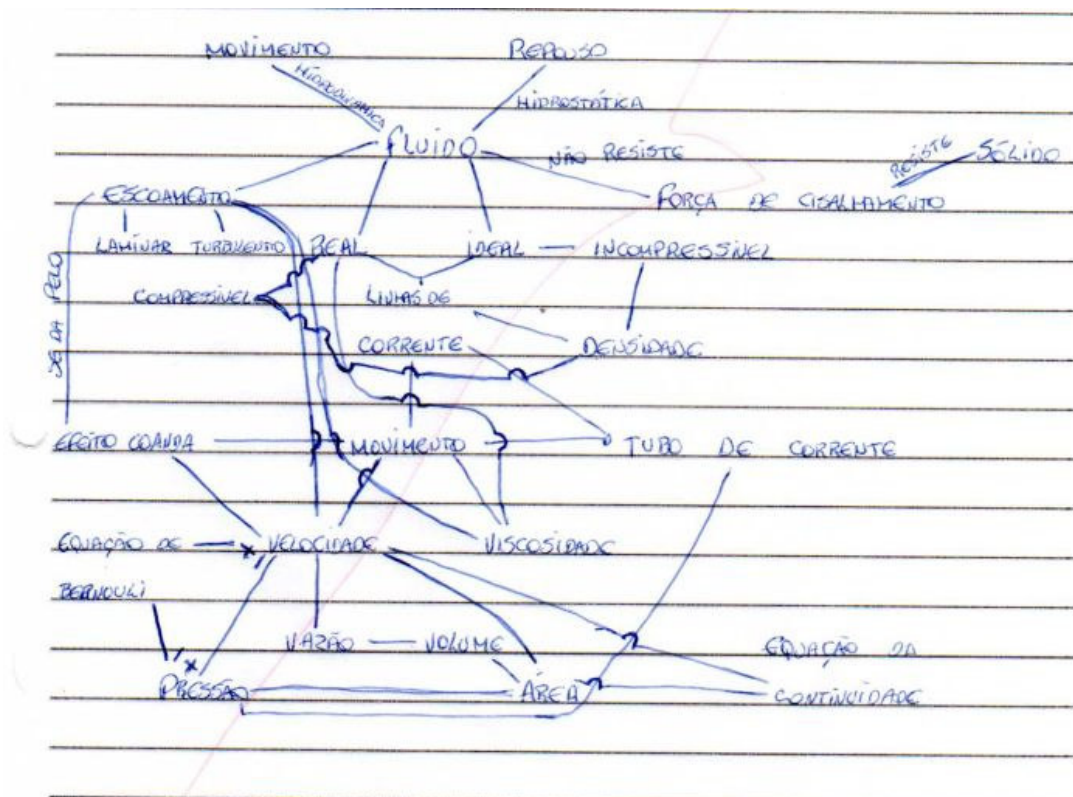 MOVIMENTO REPOUSO
HIDRODINÂMICA HIDROSTÁTICA
FLUIDO NÃO RESISTE RESISTE SÓLIDO
ESCOAMENTO FORÇA DE CISALHAMENTO
LAMINAR TURBULENTO REAL IDEAL INCOMPRESSÍVEL
SE DA PELO COMPRESSÍVEL LINHAS DE
CORRENTE DENSIDADE
EFEITO COANDA MOVIMENTO TUBO DE CORRENTE
EQUAÇÃO DE VELOCIDADE VISCOSIDADE
BERNOULI
VAZÃO VOLUME EQUAÇÃO DA
PRESSÃO ÁREA CONTINUIDADE